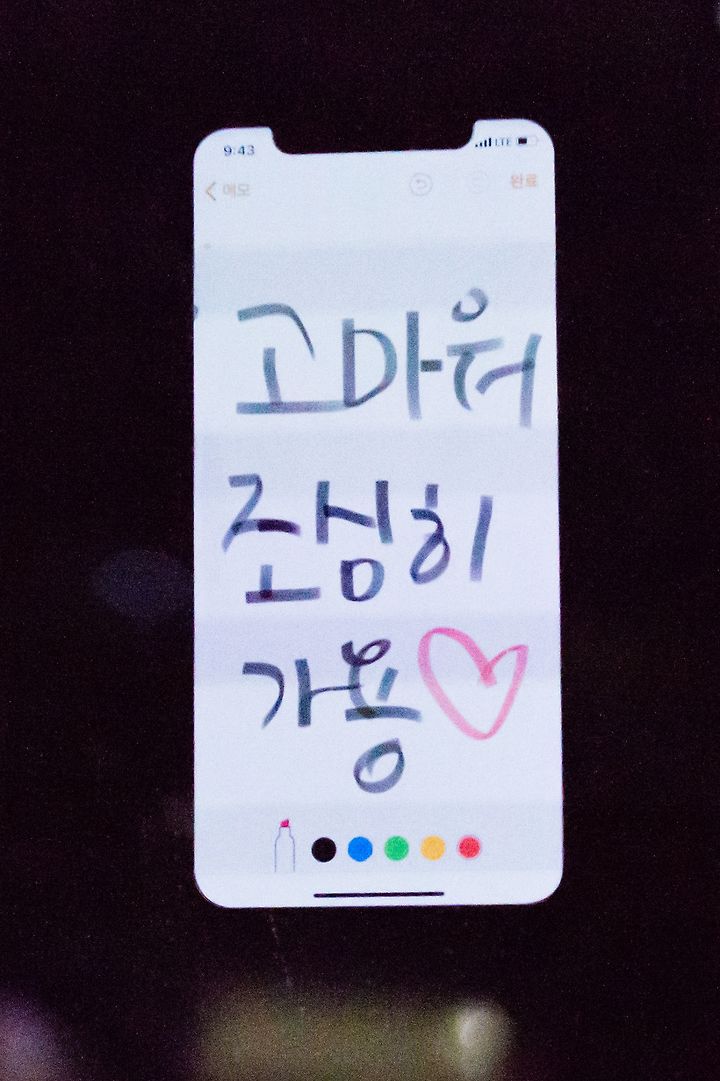 9:43 LTE
메모 완료
고마워
조심히
가용♡